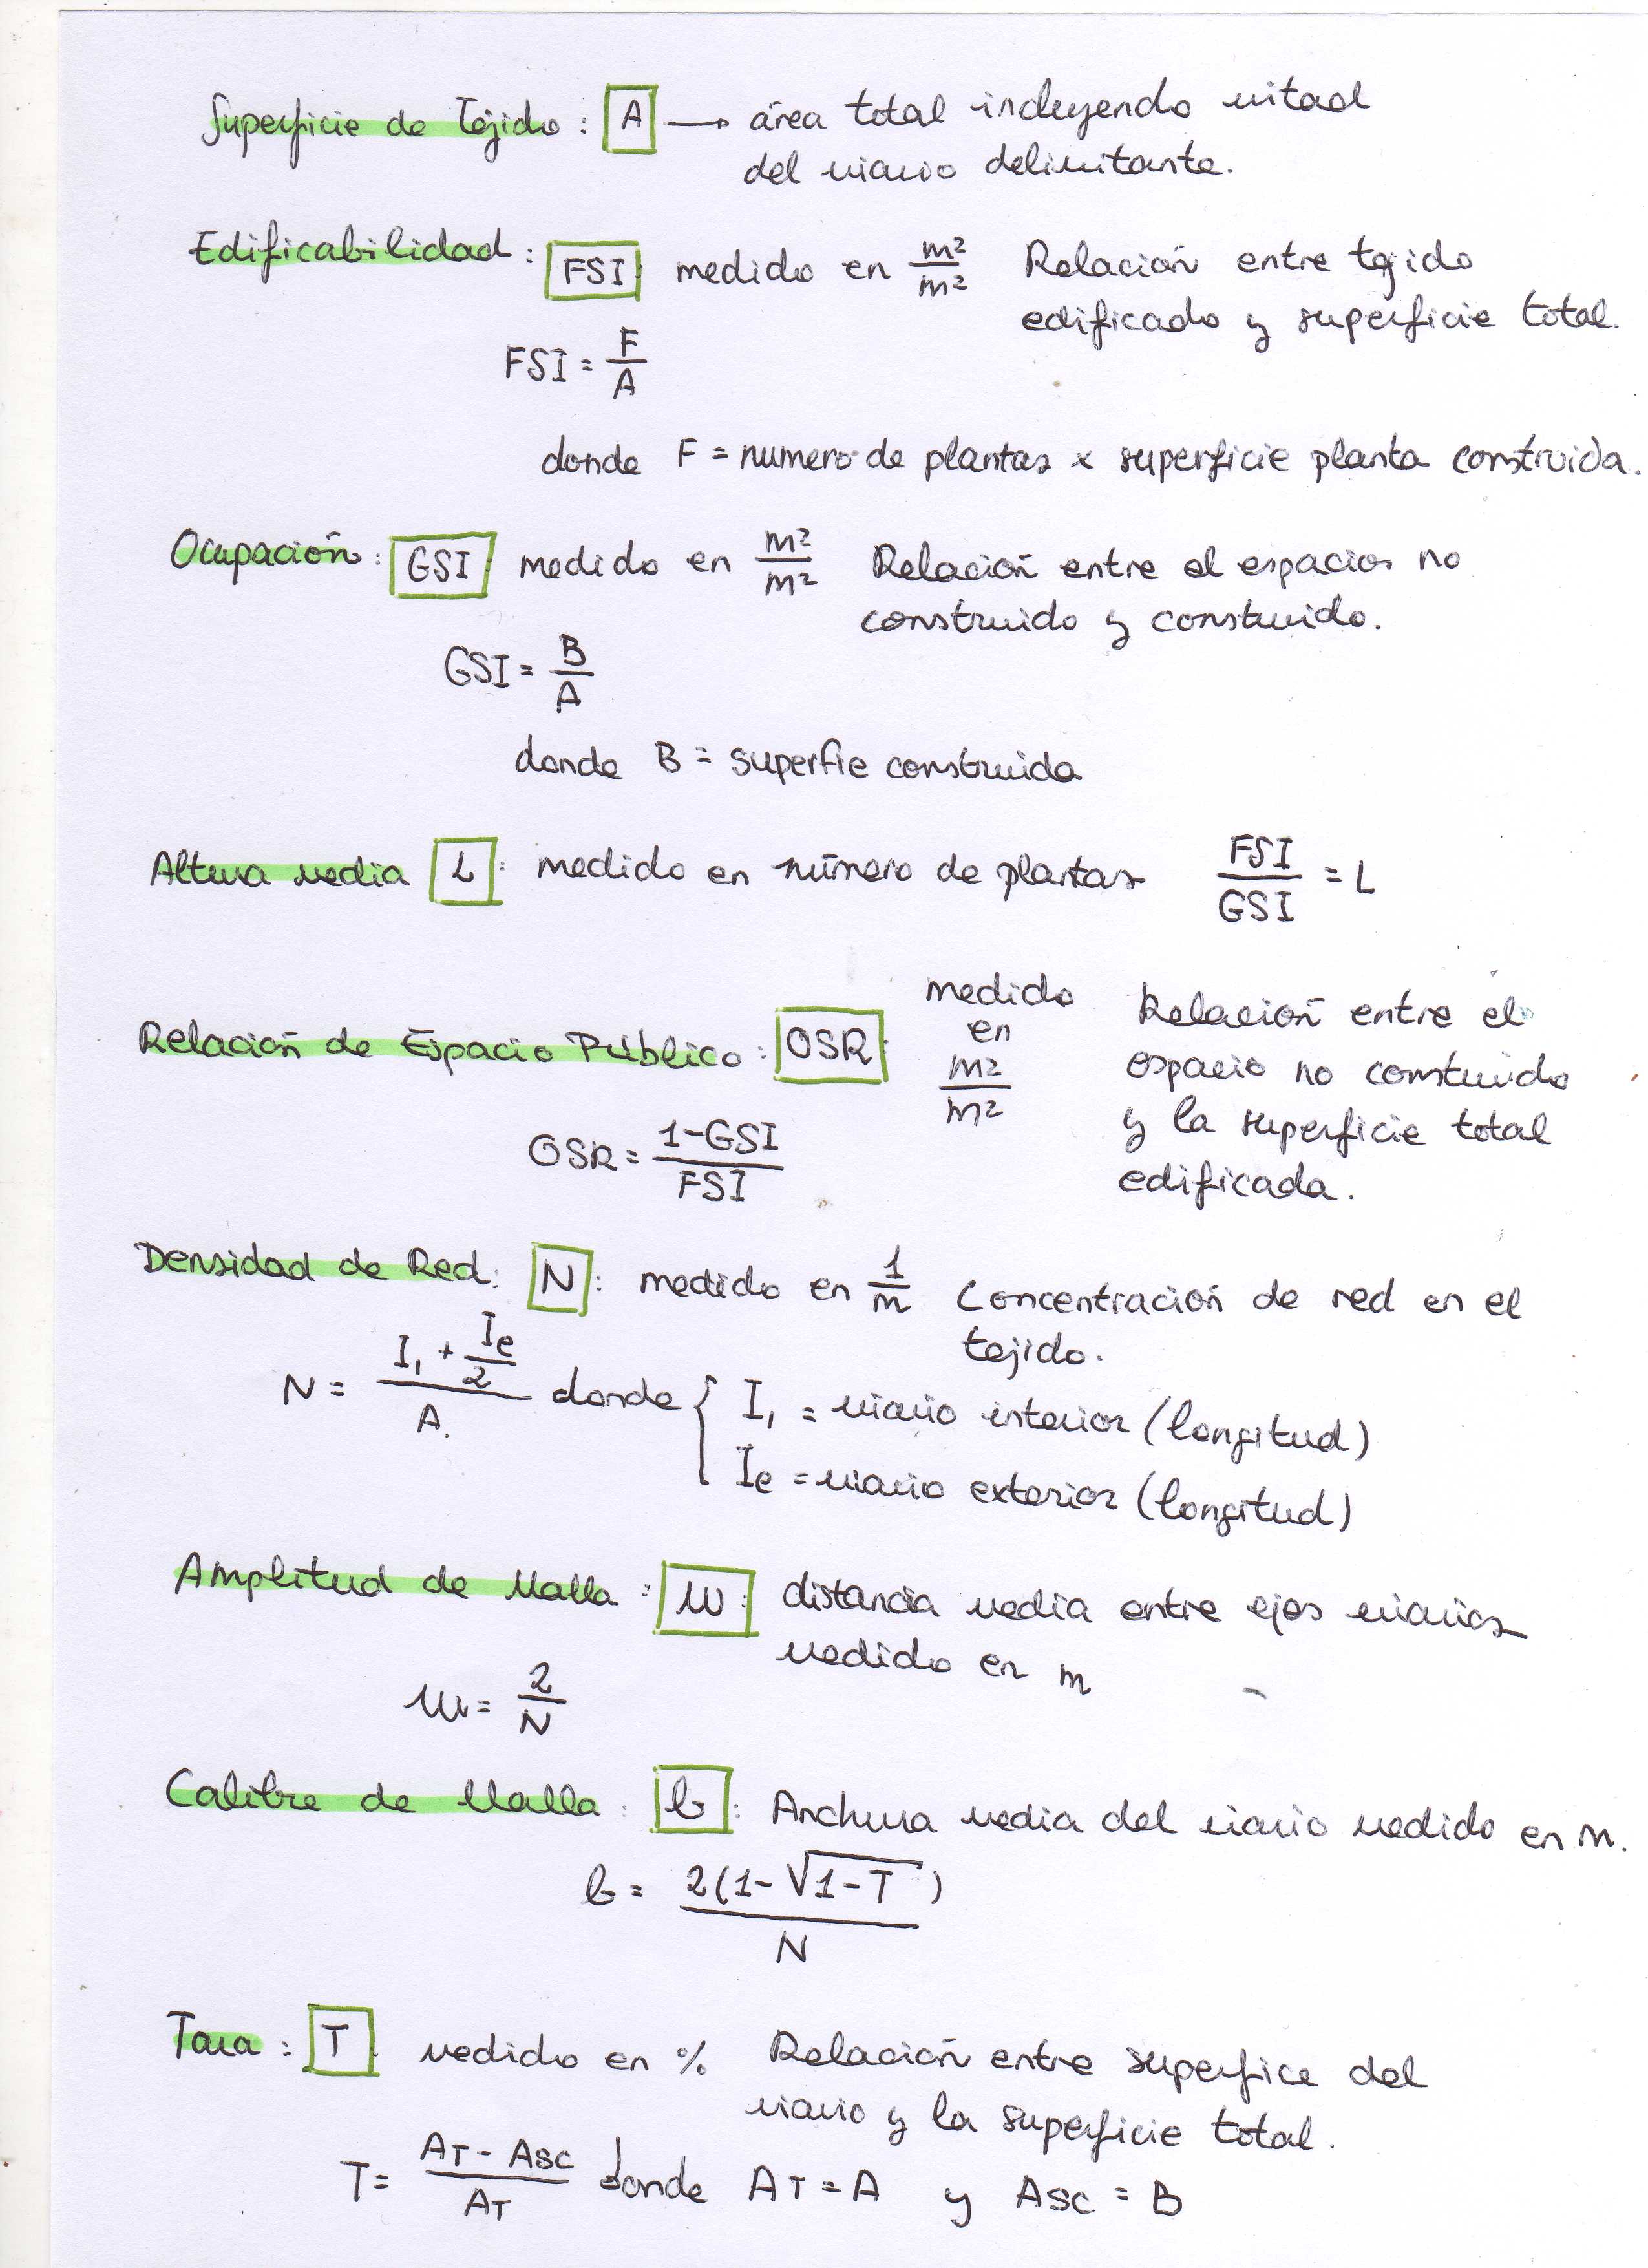 Superficie de Tejido : A → área total incluyendo mitad
del viario delimitante.
Edificabilidad : FSI medido en m²/m² Relación entre tejido
edificado y superficie total.
FSI = F/A
donde F = numero de plantas x superficie planta construida.
Ocupación : GSI medido en m²/m² Relación entre el espacios no
construido y construido.
GSI = B/A
donde B = superfie construida
Altura media L : medido en número de plantas FSI/GSI = L
Relación de Espacio Público : OSR : medido en m²/m² Relación entre el
espacio no construido
y la superficie total
edificada.
OSR = 1-GSI/FSI
Densidad de Red : N : medido en 1/m Concentración de red en el
tejido.
N = I₁ + Ie/2 / A. donde { I₁ = viario interior (longitud)
Ie = viario exterior (longitud)
Amplitud de Malla : W : distancia media entre ejes viarios
medido en m
W = 2/N
Calibre de Malla : b : Anchura media del viario medido en m.
b = 2(1-√1-T)/N
Tara : T medido en % Relación entre superfice del
viario y la superficie total.
T = AT - ASC/AT donde AT = A y ASC = B